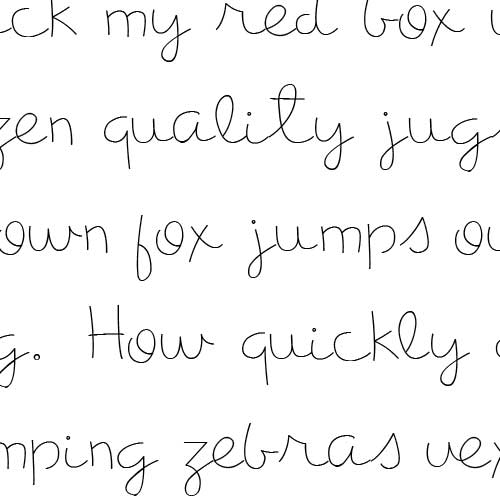 ck my red box
zen quality jugs
own fox jumps ov
g. How quickly
mping zebras vex